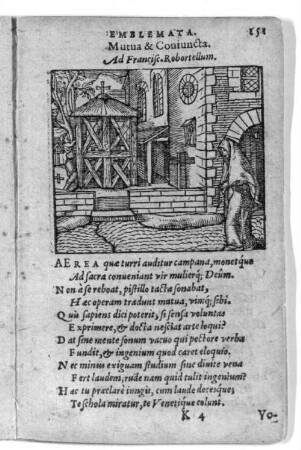 EMBLEMATA. 151
Mutua & Coniuncta.
Ad Francisc. Robortellum.
AEREA quæ turri auditur campana, monetque
Ad sacra conueniant vir mulierq; Deûm.
Non à se reboat, pistillo tacta sonabat,
Hæc operam tradunt mutua, vimq; sibi.
Quis sapiens dici poterit, si sensa voluntas
Exprimere, & docta nesciat arte loqui?
Dat sine mente sonum vacuo qui pectore verba
Fundit, & ingenium quod caret eloquio.
Nec minus exiguam studium sine diuite vena
Fert laudem, rude nam quid tulit ingenium?
Hæc tu præclarè iungis, cum laude docesque;
Te schola miratur, te Venetique colunt.
K 4 Vo-